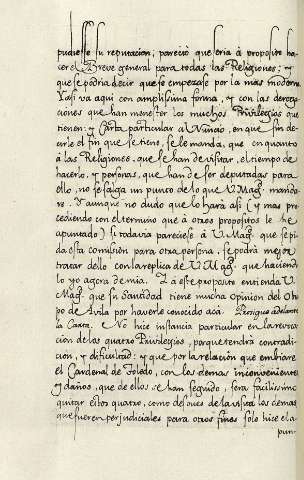 pudiesse su reputacion, pareciò que seria à proposito ha-
cer el Breve general para todas las Religiones; y
que se podria decir que se empezase por la mas moderna
Y asi va aqui con amplisima forma, y con las deroga-
ciones que han menester los muchos Privilegios que
tienen; y Carta particular al Nuncio, en que sin de-
cirle el fin que se tiene, se le manda, que en quanto
à las Religiones, que se han de visitar, el tiempo de
hacerlo, y personas, que han de ser deputadas para
ello, no se salga un punco de lo que V. Magd. manda-
re. Y aunque no dudo que lo harà asi (y mas pro-
cediendo con el termino que à otros propositos le he
apuntado) si todavia pareciese à V. Magd. que se pi-
da esta comision para otra persona, se podrà mejor
tratar dello con la replica de V. Magd. que haciendo
lo yo agora de mia. Y a este proposito entienda V.
Magd. que su Santidad tiene mucha opinion del Obis-
po de Avila por haverle conocido acà. Prosigue adelante
la Carta. No hice instancia particular en la revoca-
cion de los quatro Privilegios, porque tendrà contradi-
cion, y dificultad: y que por la relacion que embiare
el Cardenal de Toledo, con los demas inconvenientes
y daños, que de ellos se han seguido, serà facilissimo
quitar estos quatro, como despues de la visita los demas
que fueren perjudiciales para otros fines solo hice el a
pun-